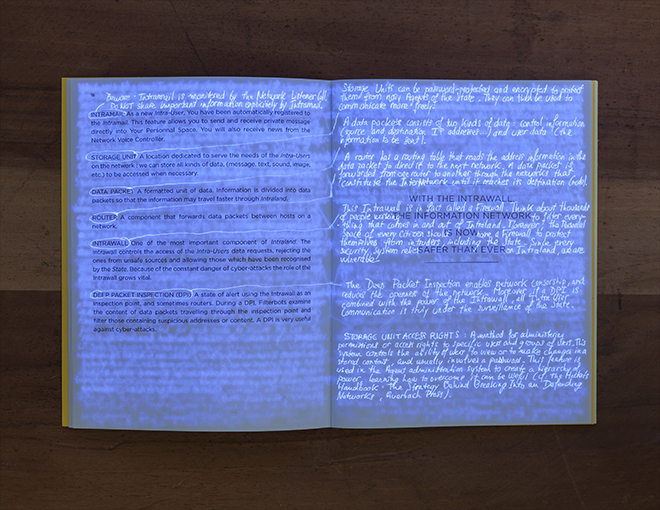 Beware: Intramail is monitored by the Network Listener
Do NOT share important information explicitely by Intramail.
INTRAMAIL As a new Intra-User, You have been automatically registered to
the Intramail. This feature allows you to send and receive private message
directly into Your Personnal Space. You will also receive news from the
Network Voice Controller.
STORAGE UNIT A location dedicated to serve the needs of the Intra-Users
on the network: we can store all kinds of data, (message, text, sound, image,
etc.) to be accessed when necessary.
DATA PACKET A formatted unit of data. Information is divided into data
packets so that the information may travel faster through Intraland.
ROUTER A component that forwards data packets between hosts on a
network.
INTRAWALL One of the most important component of Intraland. The
Intrawall controls the access of the Intra-Users data requests, rejecting the
ones from unsafe sources and allowing those which have been recognised
by the State. Because of the constant danger of cyber-attacks the role of the
Intrawall grows vital.
DEEP PACKET INSPECTION (DPI) A state of alert using the Intrawall as an
inspection point, and sometimes routers. During a DPI, Filterbots examine
the content of data packets travelling through the inspection point and
filter those containing suspicious addresses or content. A DPI is very useful
against cyber-attacks.
Storage Units can be password-protected and encrypted to protect
them from nosy Agents of the State. They can then be used to
communicate more freely.
A data packets consists of two kinds of data: control information
(source and destination IP addresses...) and user data (the
information to be sent).
A router has a routing table that reads the address information in the
data packet to send it to the next network. A data packet is
forwarded from one router to another through the networks that
constitute the Internetwork until it reaches its destination (node).
WITH THE INTRAWALL,
THE INFORMATION NETWORK
IS NOW
SAFER THAN EVER
This Intrawall is in fact called a Firewall. Think about thousands
of people working to filter every-
thing that comes in and out of Intraland. Moreover, the Personal
Space of every Citizen should have a firewall to protect
themselves from intruders, including the State. Since every
security system relies on Intraland, we are
vulnerable.
The Deep Packet Inspection enables network censorship, and
reduces the openness of the network. Moreover, if a DPI is
combined with the power of the Intrawall, all Intra-User
Communication is study under the surveillance of the State.
STORAGE UNIT ACCESS RIGHTS: A method for administering
permissions or access rights to specific user and groups of user. This
system controls the ability of user to view or to make changes in a
stored content, and usually involves a password. This feature is
used in the Agent administration system to create a hierarchy of
power, learning how to overcome it can be useful (cf. The Hacker's
Handbook: The Strategy Behind Breaking Into an Defending
Networks, Auerbach Press).